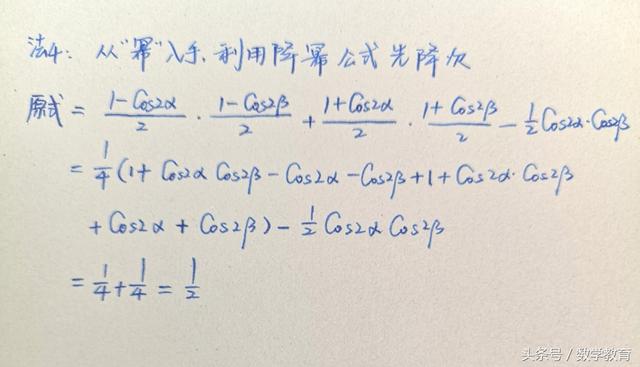 法4: 从"幂"入手,利用降幂公式先降次
原式 = (1-Cos2α)/2 · (1-Cos2β)/2 + (1+Cos2α)/2 · (1+Cos2β)/2 - 1/2 Cos2α·Cos2β
= 1/4 (1+ Cos2α Cos2β - Cos2α - Cos2β + 1 + Cos2α· Cos2β
+ Cos2α + Cos2β) - 1/2 Cos2α Cos2β
= 1/4 + 1/4 = 1/2
头条号 / 数学教育